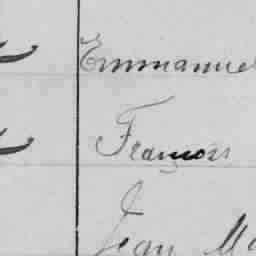 Emmanuel
François
Jean Ma